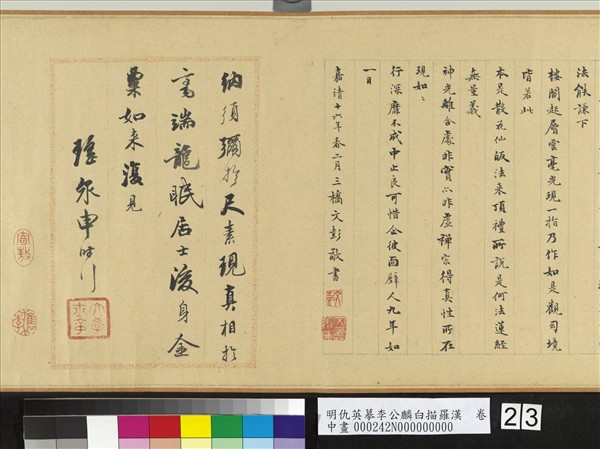 法錄謙下
樓閣起層雲毫光現一指乃作如是觀司境
皆若此
本是散花仙皈法來頂禮所說是何法蓮經
無量義
神光離合處非實亦非虛禪宗得真性所在
現如〻
行深靡不成中止良可惜企彼面壁人九年如
一日
嘉靖十六年春二月三橋文彭敬書
納須彌於尺素現真相於
毫端龍眠居士後身金
粟如来復見
瑤泉申時行
明仇英摹李公麟白描羅漢 卷
中畫000242N000000000
23